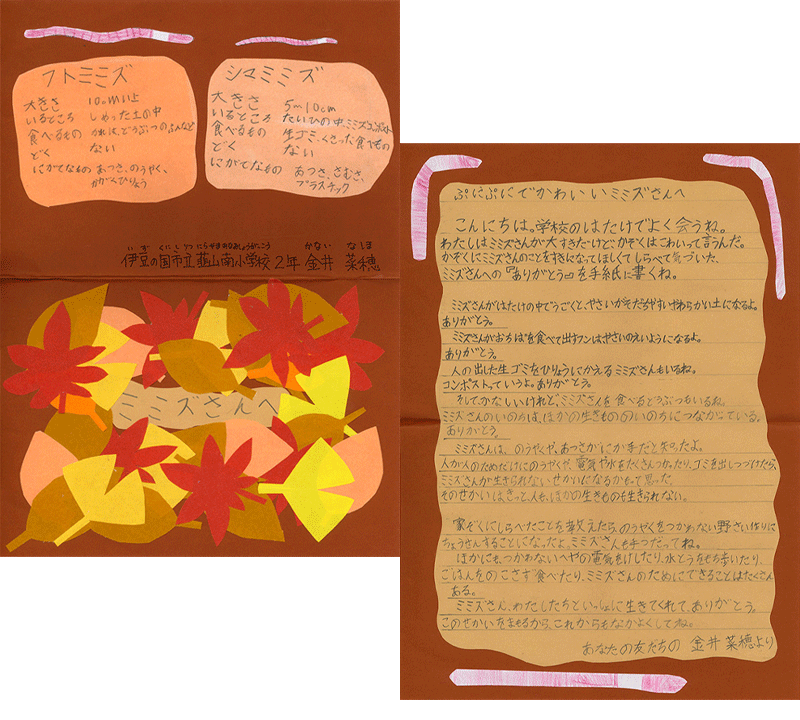 フトミミズ
大きさ 10cm以上
いるところ しめった土の中
食べるもの かれは、どうぶつのふんなど
どく ない
にがてなもの あつさ、のうやく、
かがくひりょう
シマミミズ
大きさ 5〜10cm
いるところ たいひの中、ミミズコンポスト
食べるもの 生ゴミ、くさった食べもの
どく ない
にがてなもの あつさ、さむさ、
プラスチック
伊豆の国市立韮山南小学校2年 金井 菜穂
ミミズさんへ
ぷにぷにでかわいいミミズさんへ
こんにちは。学校のはたけでよく会うね。
わたしはミミズさんが大すきだけど、かぞくはこわいって言うんだ。
かぞくにミミズさんのことをすきになってほしくてしらべて気づいた、
ミミズさんへの『ありがとう』を手紙に書くね。
ミミズさんがはたけの中でうごくと、やさいがそだちやすいやわらかい土になるよ。
ありがとう。
ミミズさんがおちばを食べて出すフンはやさいのえいようになるよ。
ありがとう。
人の出した生ゴミをひりょうにかえるミミズさんもいるね。
コンポストっていうよ。ありがとう。
そして、かなしいけれど、ミミズさんを食べるどうぶつもいるね。
ミミズさんのいのちは、ほかの生きもののいのちにつながっている。
ありがとう。
ミミズさんは、のうやくや、あつさがにが手だと知ったよ。
人が人のためだけにのうやくや、電気や水をたくさんつかったり、ゴミを出しつづけたら、
ミミズさんが生きられないせかいになるかもって思った。
そのせかいはきっと、人も、ほかの生きものも生きられない。
家ぞくにしらべたことを教えたら、のうやくをつかわない野さい作りに
ちょうせんすることになったよ。ミミズさんも手つだってね。
ほかにも、つかわないへやの電気をけしたり、水とうをもち歩いたり、
ごはんをのこさず食べたり、ミミズさんのためにできることはたくさん
ある。
ミミズさん、わたしたちといっしょに生きてくれて、ありがとう。
このせかいをまもるから、これからもなかよくしてね。
あなたの友だちの 金井 菜穂より